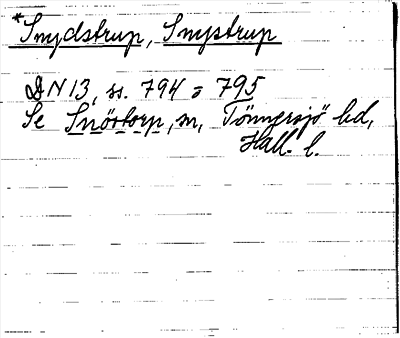 *Snydstrup, Snystrup
DN 13, ss. 794 = 795
Se Snöstorp, sn, Tönnersjö hd,
Hall. l.